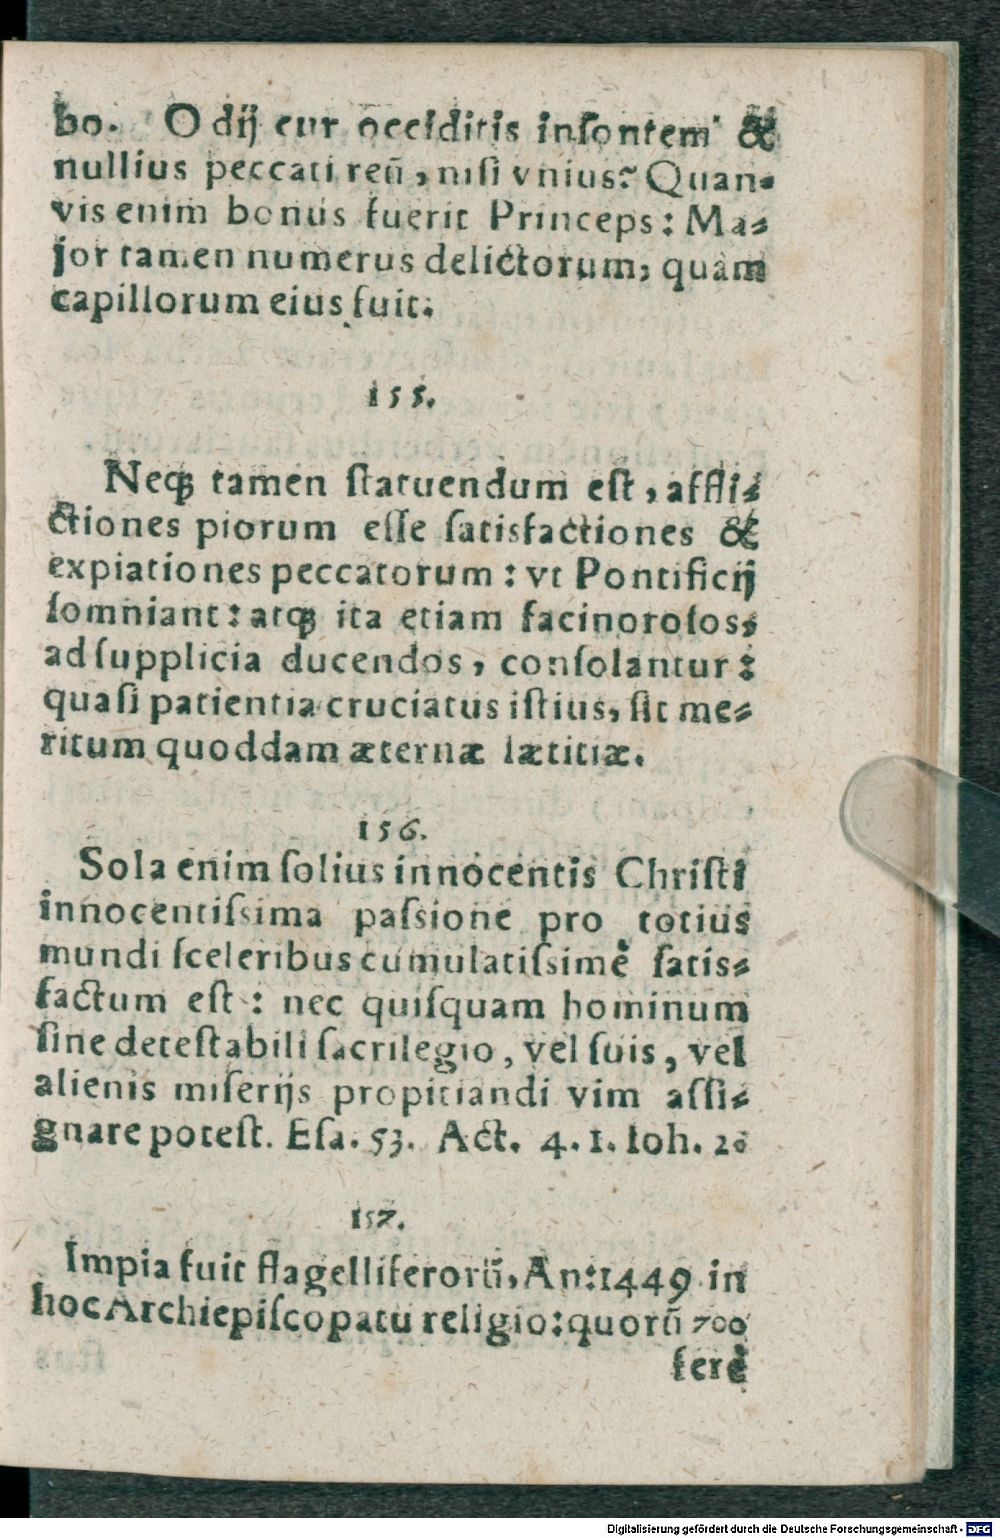 bo. O dij cur occiditis inſontem &
nullius peccati reū, niſi vnius? Quan-
vis enim bonus fuerit Princeps: Ma-
jor tamen numerus delictorum, quàm
capillorum eius fuit.
155.
Neqꝫ tamen ſtatuendum eſt, affli-
ctiones piorum eſſe ſatisfactiones &
expiationes peccatorum: vt Pontificij
ſomniant: atqꝫ ita etiam facinoroſos,
ad ſupplicia ducendos, conſolantur:
quaſi patientia cruciatus iſtius, ſit me-
ritum quoddam æternæ lætitiæ.
156.
Sola enim ſolius innocentis Chriſti
innocentiſsima paſsione pro totius
mundi ſceleribus cumulatiſsimè ſatis-
factum eſt: nec quiſquam hominum
ſine deteſtabili ſacrilegio, vel ſuis, vel
alienis miſerijs propitiandi vim aſſi-
gnare poteſt. Eſa. 53. Act. 4. 1. Ioh. 2.
157.
Impia fuit flagelliferorū, An: 1449 in
hoc Archiepiſcopatu religio: quorū 700
ferè
Digitalisierung gefördert durch die Deutsche Forschungsgemeinschaft - DFG